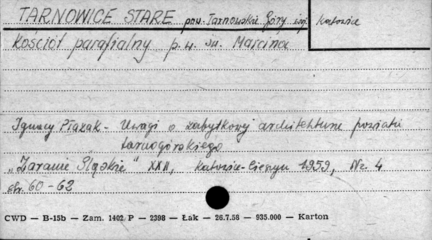 TARNOWICE STARE pow. Tarnowskie Góry woj. Katowice
Kościół parafialny p.w. św. Marcina
Ignacy Płazak - Uwagi o zabytkowej architekturze powiatu
tarnogórskiego
"Zaranie Śląskie" XXII, Katowice-Cieszyn 1959, Nr 4
str. 60-62
CWD — B-15b — Zam. 1402 P — 2398 — Łak — 26.7.58 — 935.000 — Karton